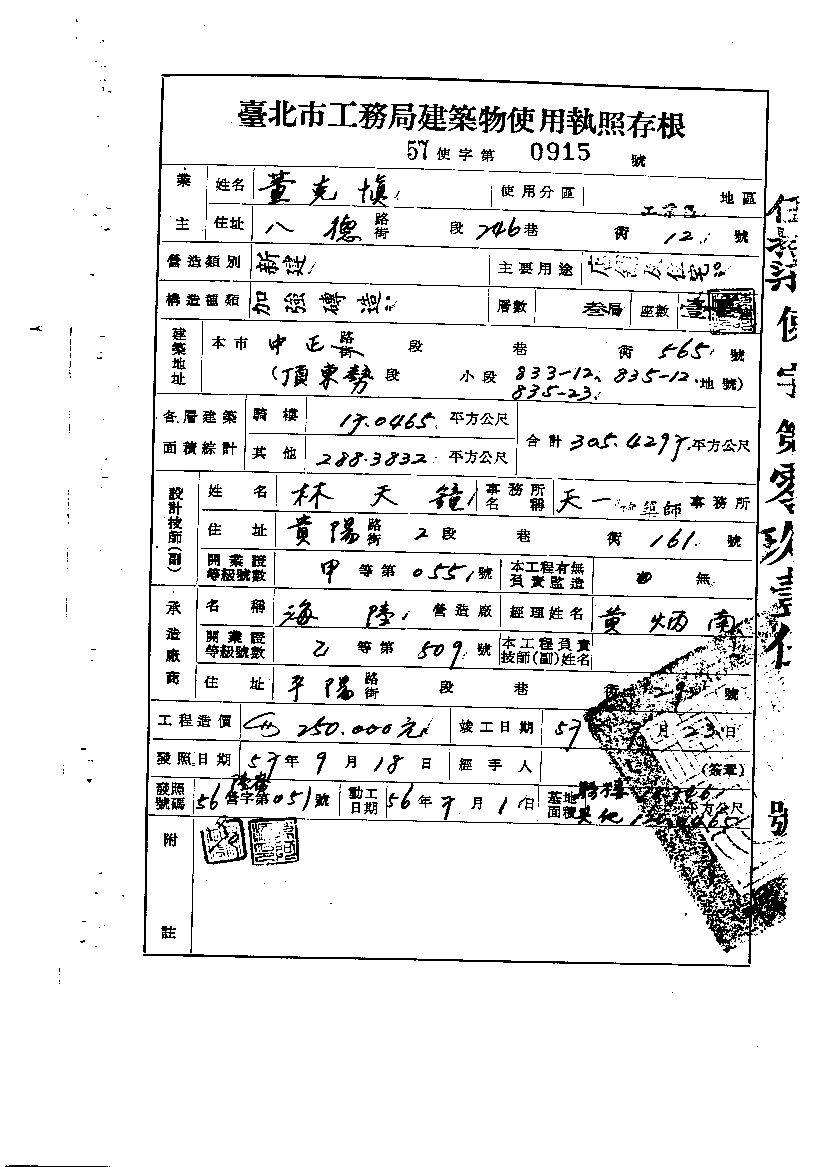 臺北市工務局建築物使用執照存根
57使字第 0915 號
業主 姓名 董克慎 使用分區 工業區 地區
住址 八德路街 段 246巷 街 12 號
營造類別 新建 主要用途 店舖及住宅
構造種類 加強磚造 層數 叁層 座數
建築地址 本市 中正路街 段 巷 街 565 號
(頂東勢段 小段 833-12、835-12 地號)
835-23
各層建築面積綜計 騎樓 17.0465 平方公尺 合計 305.4297 平方公尺
其他 288.3832 平方公尺
設計技師(副) 姓名 林天鐘 事務所名稱 天一建築師事務所
住址 貴陽路街 2段 巷 街 161 號
開業證等級號數 甲等第0551號 本工程有無負責監造 無
承造廠商 名稱 海陸 營造廠 經理姓名 黄炳南
開業證等級號數 乙等第509號 本工程負責技師(副)姓名
住址 平陽路街 段 巷 街 29 號
工程造價 250.000元 竣工日期 57 月 23日
發照日期 57年9月18日 經手人 (簽章)
發照號碼 56 營字第051號 動工日期 56年7月1日 基地面積 騎樓 其他 平方公尺
附註
使字第零玖壹伍號